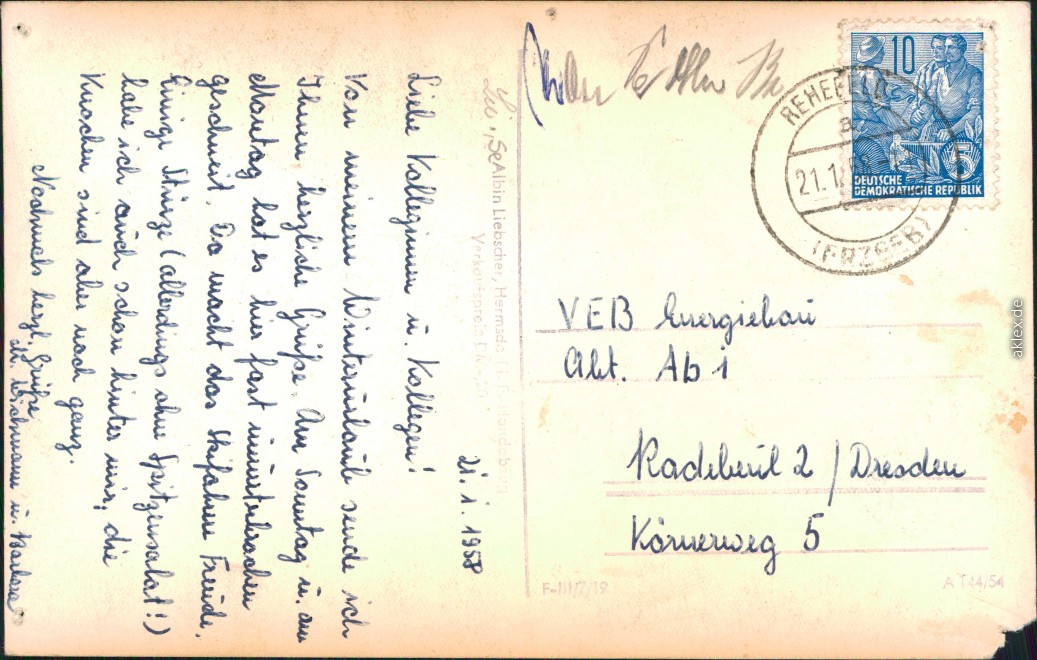 21. 1. 1958
Liebe Kolleginnen u. Kollegen!
Von meinem Winterurlaub sende ich
Ihnen herzliche Grüße. Am Sonntag u. am
Montag hat es hier fast ununterbrochen
geschneit. Da macht das Skifahren Freude.
Einige Stürze (allerdings ohne Spitzensalat!)
habe ich auch schon hinter mir, die
Knochen sind aber noch ganz.
Nochmals herzl. Grüße
u. Barbara
Albin Liebscher, Hermsdorf
Verkaufspreis
10
DEUTSCHE
DEMOKRATISCHE REPUBLIK
5
REHEFELD
21.1
(ERZGEB)
VEB Energiebau
Abt. Ab 1
Radebeul 2 / Dresden
Körnerweg 5
F-III/7/19
A 1 44/54
aklex.de